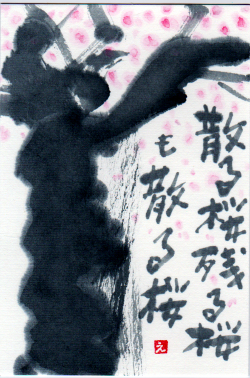 散る桜残る桜
も散る桜
え